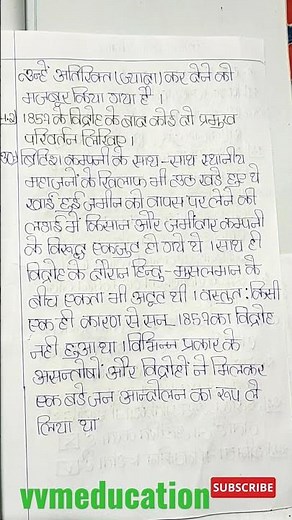 उन्हें अतिरिक्त (ज्यादा) कर देने को
मजबूर किया गया है ।
1857 के विद्रोह के बाद कोई दो प्रमुख
परिवर्तन लिखिए ।
ब्रिटिश कम्पनी के साथ-साथ स्थानीय
महाजनों के खिलाफ भी उठ खडे हुए थे
खोई हुई जमीन को वापस पर लेने की
लडाई में किसान और जमींदार कम्पनी
के विरुद्ध एकजुट हो गये थे । साथ ही
विद्रोह के दौरान हिन्दु-मुसलमान के
बीच एकता भी अटूट थी । वस्तुत: किसी
एक ही कारण से सन् 1857 का विद्रोह
नही हुआ था । विभिन्न प्रकार के
असन्तोषों और विद्रोहों ने मिलकर
एक बडे जन आन्दोलन का रूप ले
लिया था
vvmeducation
SUBSCRIBE